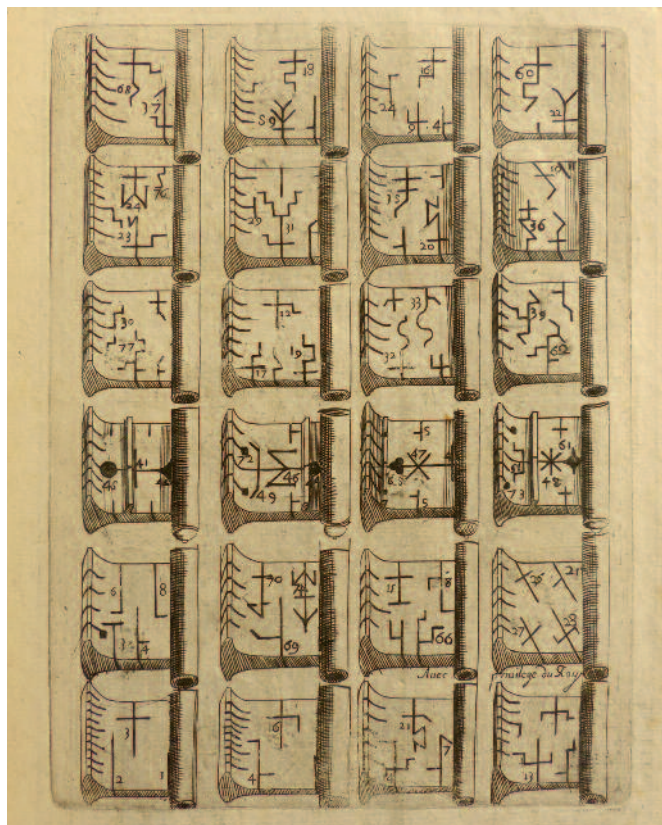 68 37
18 59
16 24 9 4
60 22
76 24 23
29 31
35 20
36
30 77
12 19 17
33 32
39 62
45 41
72 49 46
5 47 63 5
61 48 73
6 8 4
70 69
8 66
26 25 27 28
Avec privilege du Roy
3 2 1
6 4
21 7
13